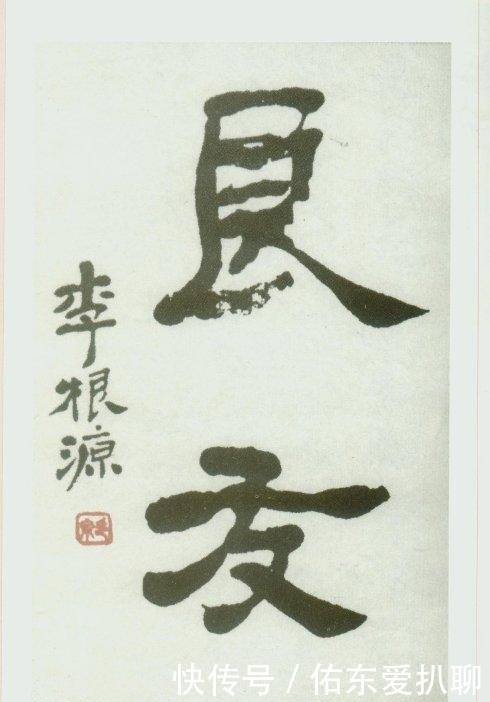 良友
李根源
快传号 / 佑东爱扒聊